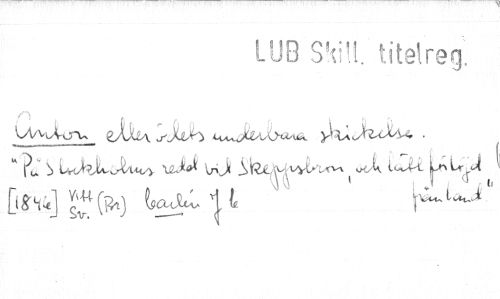 LUB Skill. titelreg.
Anton eller ödets underbara skickelse.
"På Stockholms redd vid Skeppsbron, och lätt förtöjd
[1846] Vitt Sv. (Pr) 7 b från land"